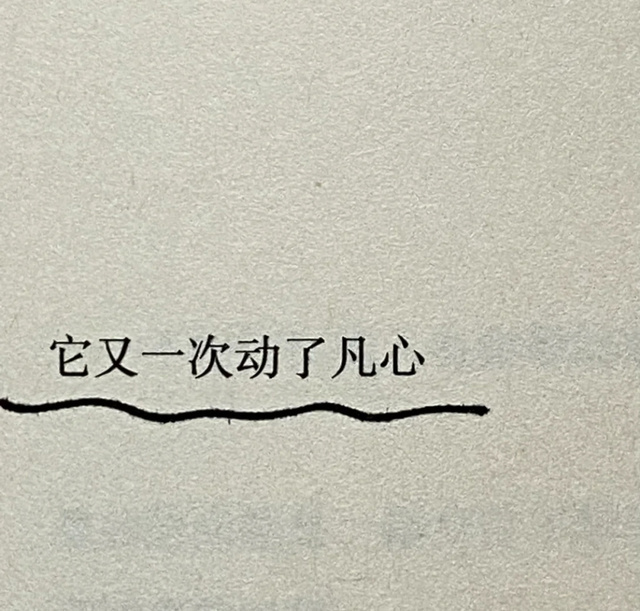 它又一次动了凡心